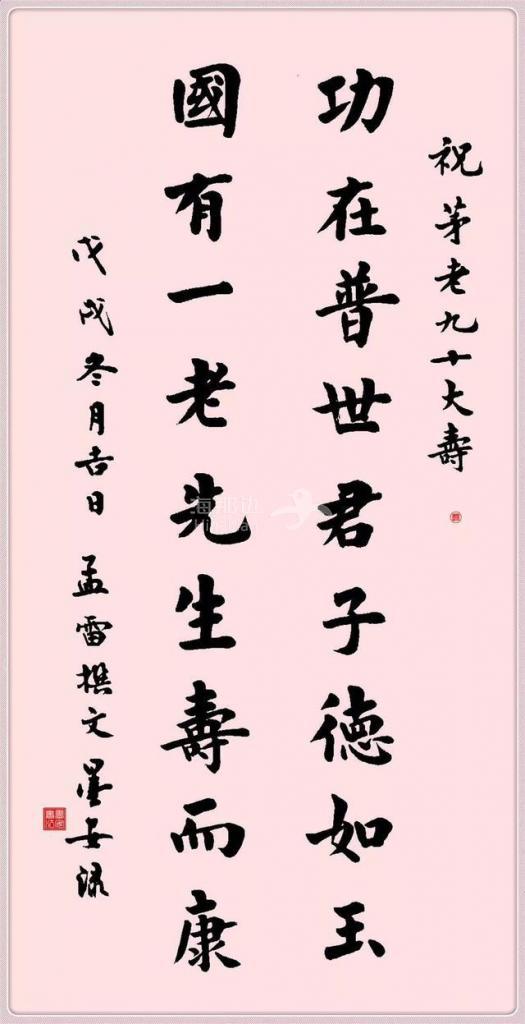 祝茅老九十大壽
功在普世君子德如玉
國有一老先生壽而康
戊戌冬月吉日 孟雷撰文墨安录
海那边